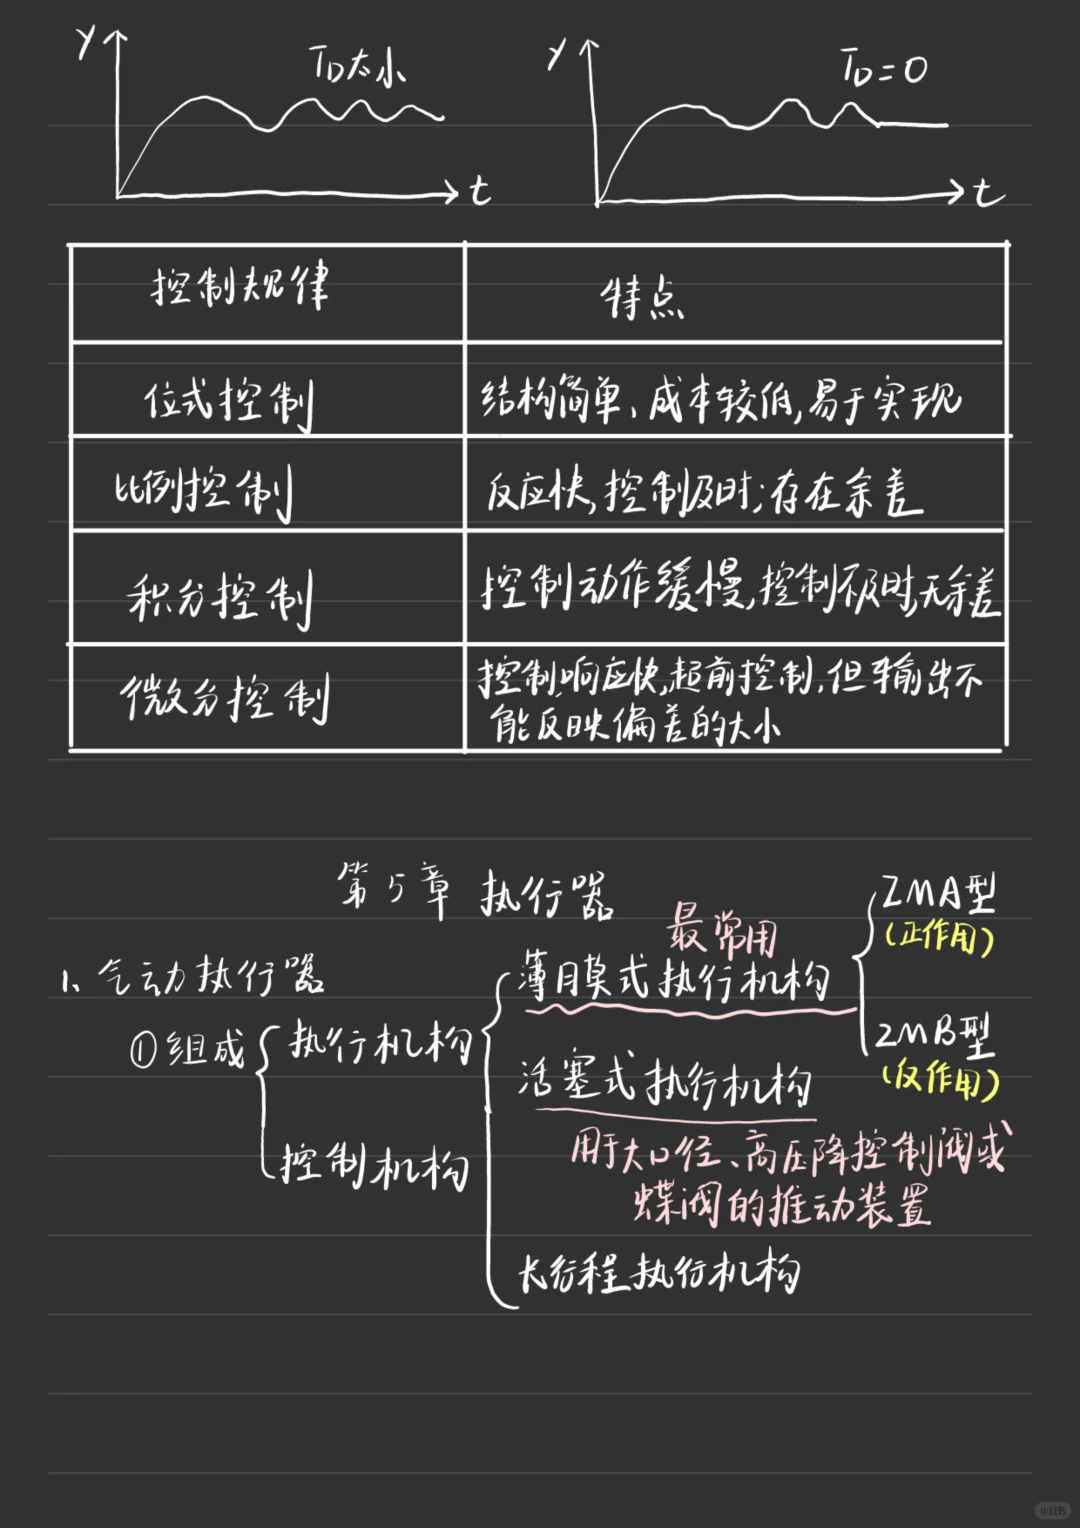 y
T_D太小
t
y
T_D=0
t
控制规律
特点
位式控制
结构简单、成本较低,易于实现
比例控制
反应快,控制及时;存在余差
积分控制
控制动作缓慢,控制不及时,无余差
微分控制
控制响应快,超前控制,但输出不
能反映偏差的大小
第5章 执行器
1、气动执行器
①组成
执行机构
控制机构
最常用
薄膜式执行机构
ZMA型
(正作用)
ZMB型
(反作用)
活塞式执行机构
用于大口径、高压降控制阀或
蝶阀的推动装置
长行程执行机构
小红书